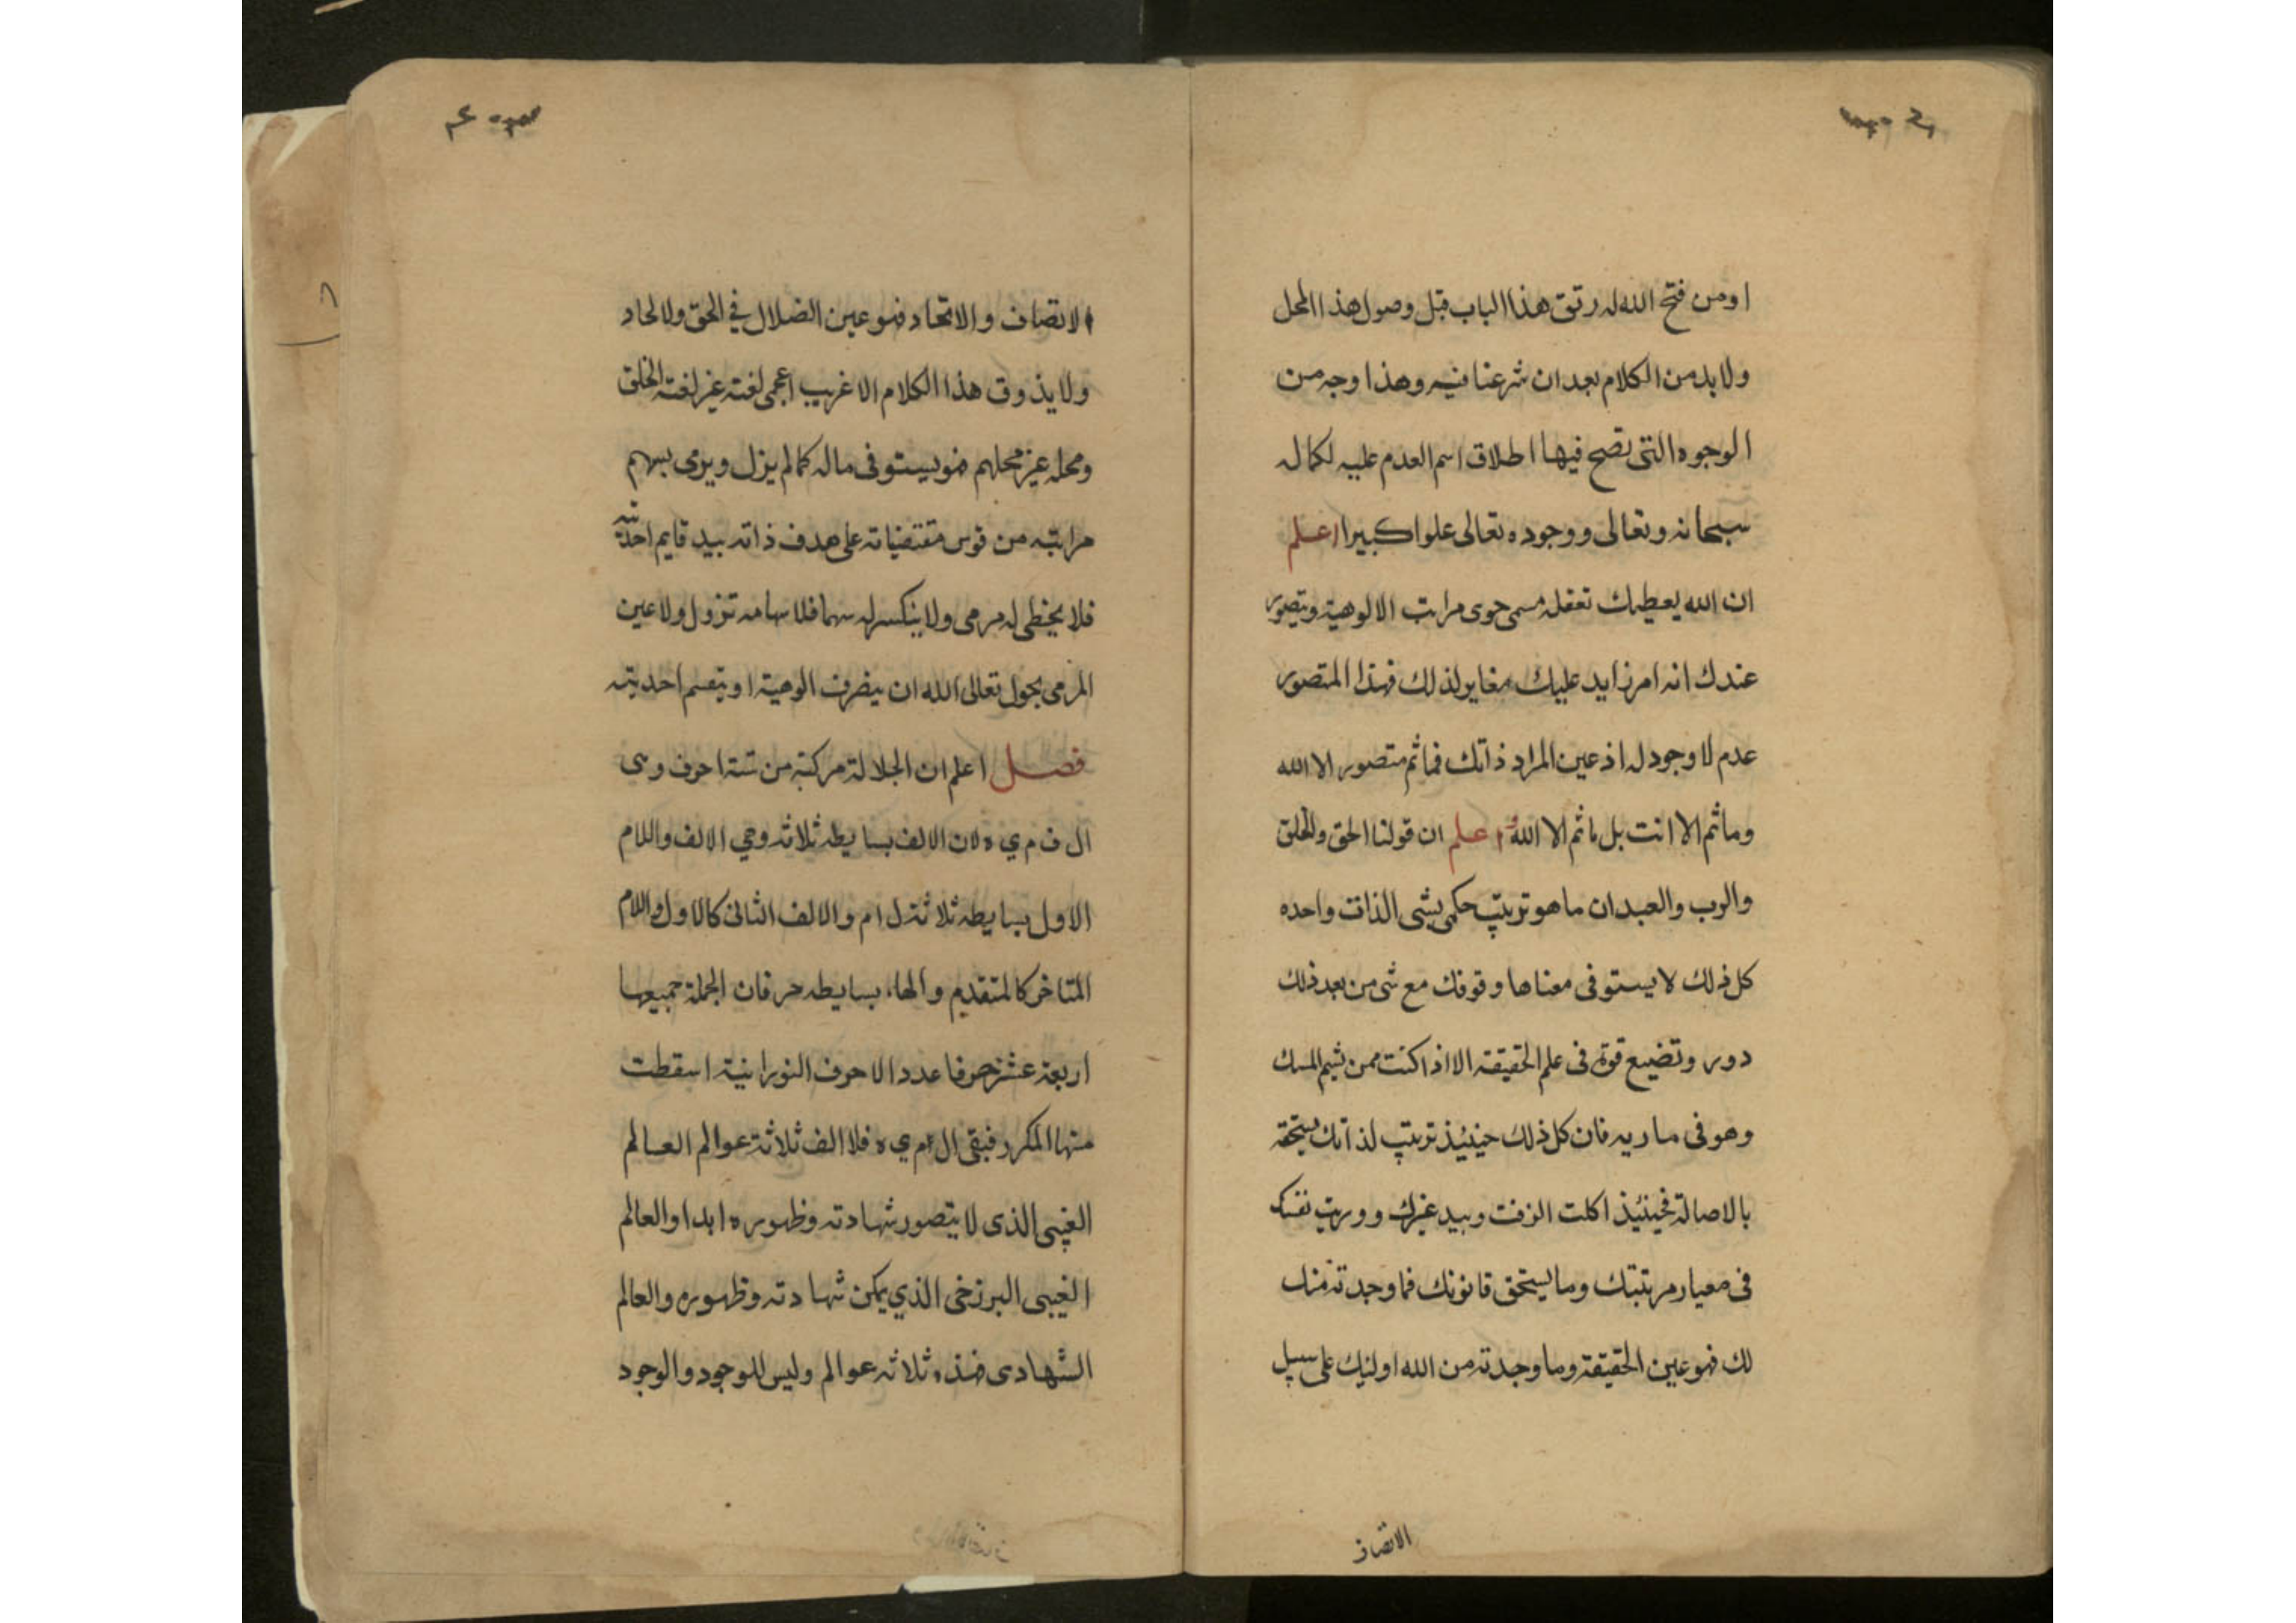 او من فتح الله له رتق هذا الباب قبل وصول هذا المحل
ولا بد من الكلام بعد ان شرعنا فيه وهذا وجه من
الوجوه التى تصح فيها اطلاق اسم العدم عليه لكماله
سبحانه وتعالى ووجوده تعالى علوا كبيرا اعلم
ان الله يعطيك تعقله مسمى حوى مراتب الالوهية ويتصور
عندك انه امر زايد عليك مغاير لذلك فهذا المتصور
عدم لا وجود له اذ عين المراد ذاتك فما ثم متصور الا الله
وما ثم الا انت بل ما ثم الا الله اعلم ان قولنا الحق والخلق
والرب والعبد ان ما هو ترتيب حكمى بشى الذات واحده
كل ذلك لا يستوفى معناها وقوفك مع شى من بعد ذلك
دور وتضيع قوة فى علم الحقيقة الا اذا كنت ممن يشيم المسك
وهو فى ماريه فان كل ذلك حينئيذ ترتيب لذاتك يستحقه
بالاصالة فحينئيذ اكلت الزفت وبيد غيرك وورتبت نفسك
فى معيار مرتبتك وما يستحق قانونك فما وجدته منك
لك فهو عين الحقيقة وما وجدته من الله اوليك على سبيل
الاتصاف
الاتصاف والاتحاد فهو عين الضلال في الحق ولالحاد
ولا يذوق هذا الكلام الا غريب اعجمى لغته غير لغته الخلق
ومحله غير محلهم فهو يستوفى ماله كما لم يزل ويرمى بسهم
مراتبه من قوس مقتضياته على هدف ذاته بيد قايم احديته
فلا يخطى له مرمى ولا ينكسر له سهما فلا سهامه تزول ولا عين
المرمى يحول تعالى الله ان يتصرف الوهية او يتقسم احديته
فصل اعلم ان الجلالة مركبة من ستة احرف وهى
ال ف م ي ه لان الالف بسايطه ثلاثه وهي الالف واللام
الاول بسايطه ثلاثة ل ا م والالف الثانى كالاول واللام
المتاخر كالمتقدم والهاء بسايطه حرفان الجملة جميعها
اربعة عشر حرفا عدد الاحرف النورانية اسقطت
منها المكرر فبقى ال ف م ي ه فلاالف ثلاثة عوالم العالم
الغيبى الذى لا يتصور شهادته وظهوره ابدا والعالم
الغيبى البرزخى الذي يمكن شهادته وظهوره والعالم
الشهادى فهذه ثلاثه عوالم وليس للوجود والوجود